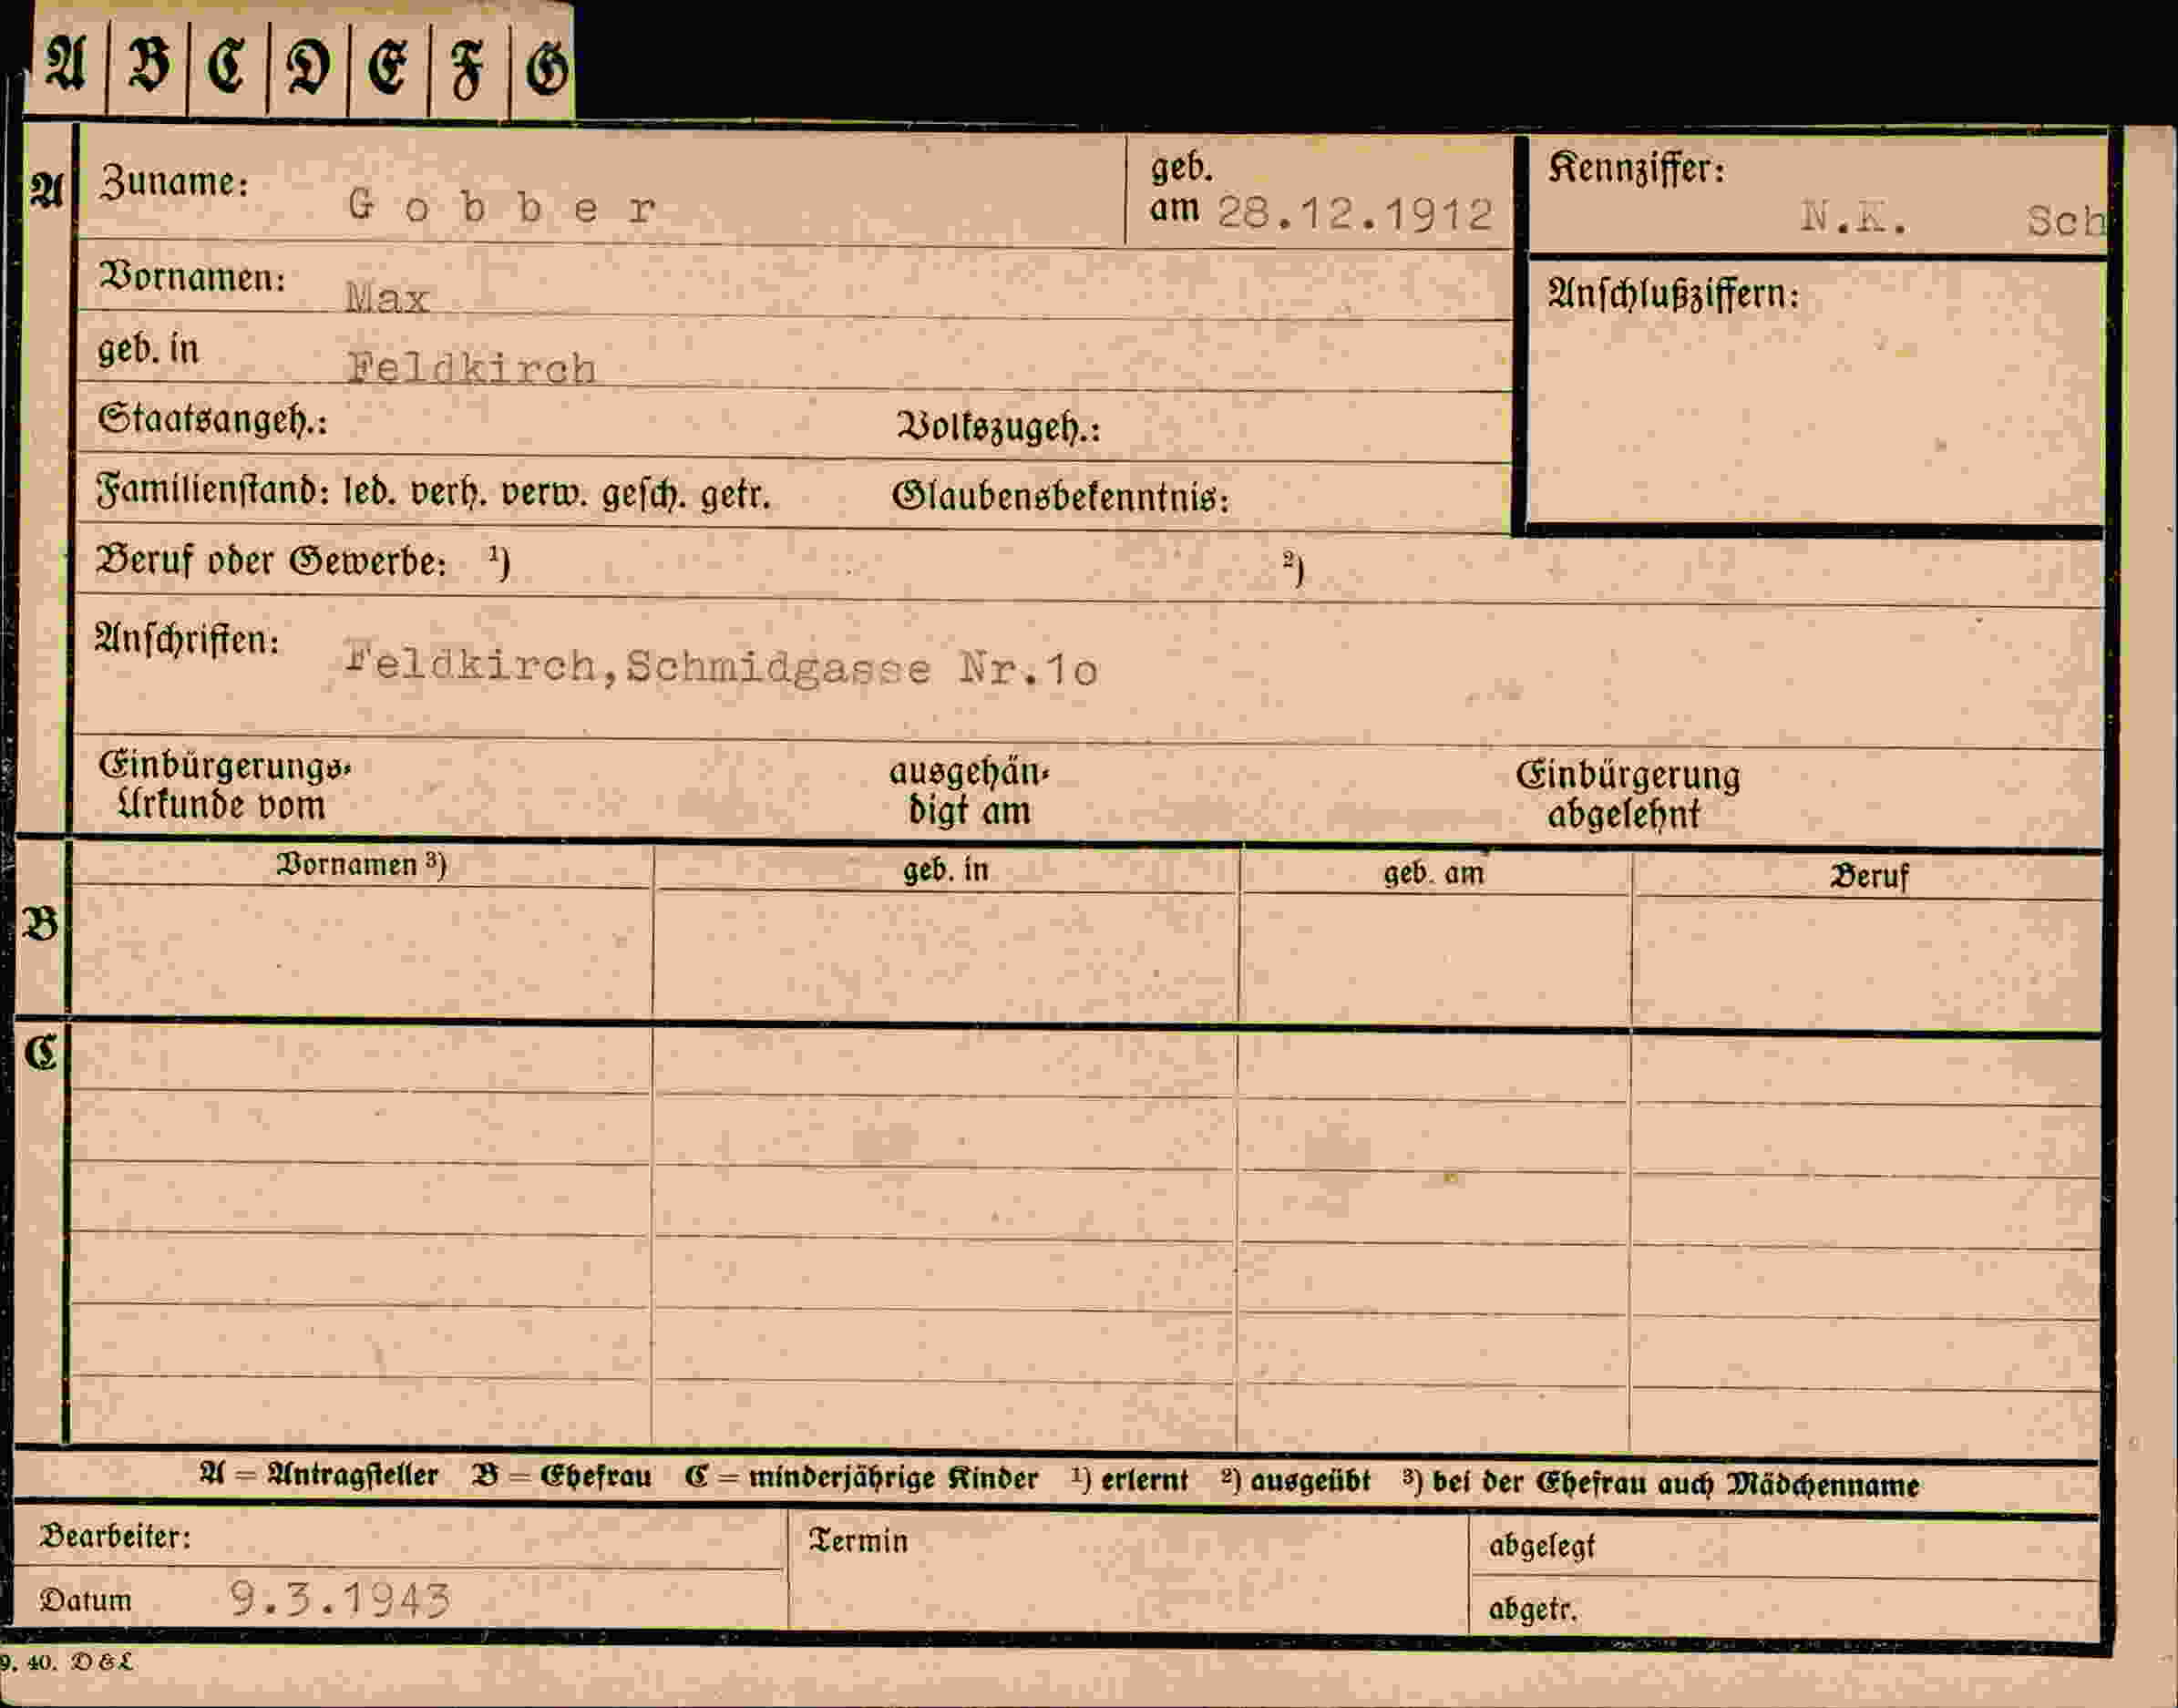 A B C D E F G
A Zuname: Gobber geb. am 28.12.1912 Kennziffer: N.K. Sch
Vornamen: Max Anschlußziffern:
geb. in Feldkirch
Staatsangeh.: Volkszugeh.:
Familienstand: led. verh. verw. gesch. getr. Glaubensbekenntnis:
Beruf oder Gewerbe: ¹) ²)
Anschriften: Feldkirch,Schmidgasse Nr.1o
Einbürgerungs- ausgehän- Einbürgerung
Urkunde vom digt am abgelehnt
Vornamen ³) geb. in geb. am Beruf
B
C
A = Antragsteller B = Ehefrau C = minderjährige Kinder ¹) erlernt ²) ausgeübt ³) bei der Ehefrau auch Mädchenname
Bearbeiter: Termin abgelegt
Datum 9.3.1943 abgetr.
9. 40. D & L